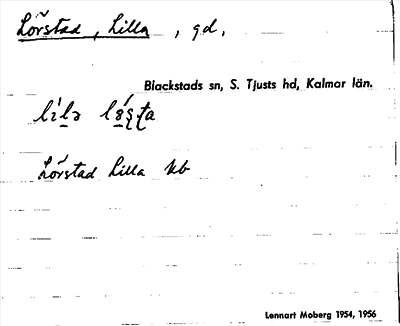 Lõrstad, Lilla, gd,
Blackstads sn, S. Tjusts hd, Kalmar län.
Lörstad Lilla kb
Lennart Moberg 1954, 1956